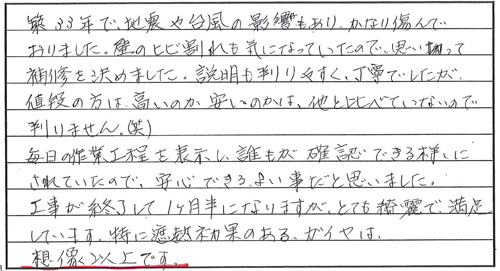 築33年で、地震や台風の影響もあり、かなり傷んで
おりました。壁のヒビ割れも気になっていたので、思い切って
補修を決めました。説明も判りやすく、丁寧でしたが、
値段の方は高いのか安いのかは、他と比べていないので
判りません。(笑)
毎日の作業工程を表示し、誰もが確認できる様に
されていたので、安心できる、よい事だと思いました。
工事が終了して1ヶ月半になりますが、とても綺麗で満足
しています。特に遮熱効果のある、ガイナは、
想像以上です。